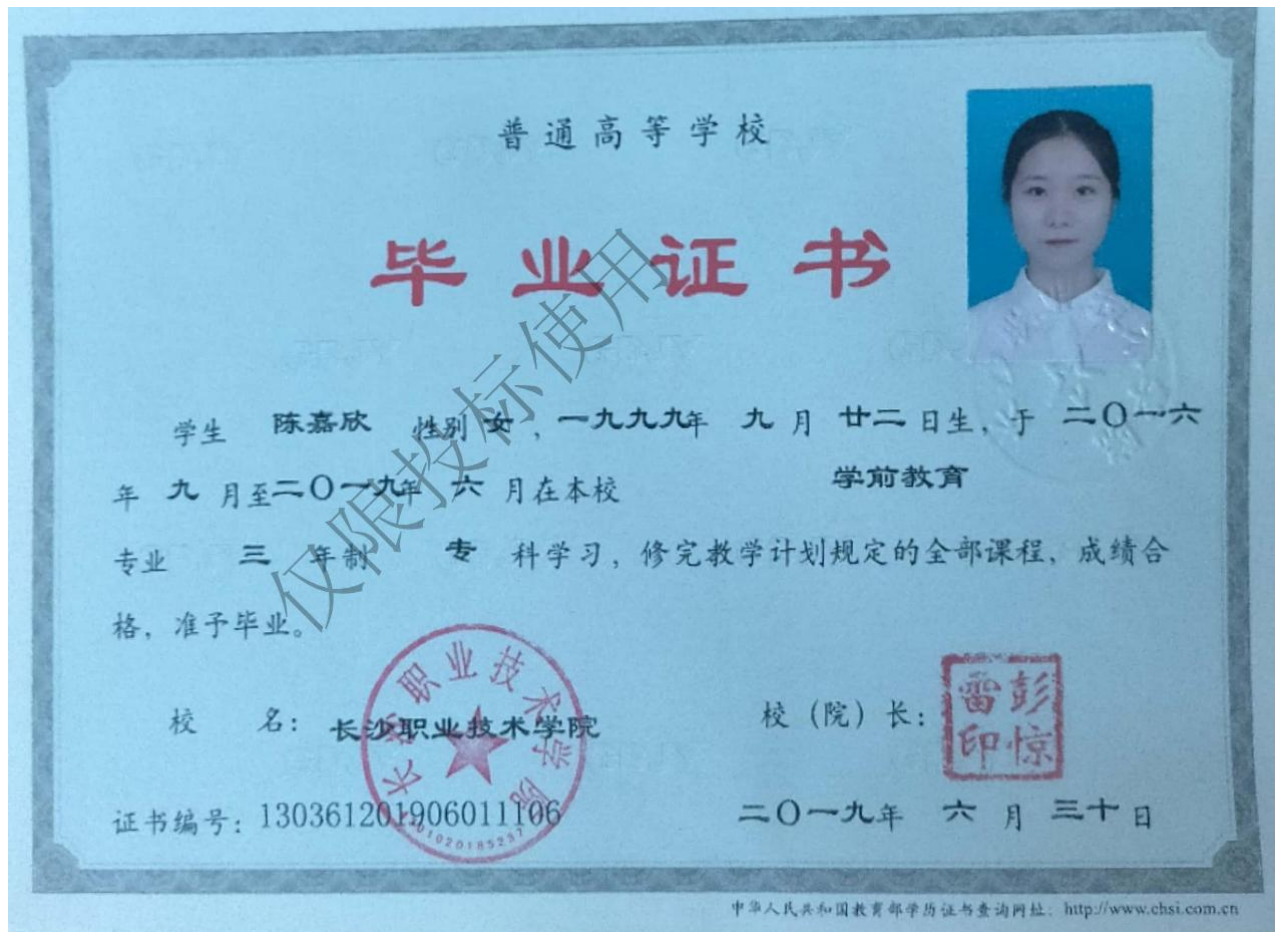 普通高等学校
毕业证书
学生 陈嘉欣 性别 女，一九九九年 九月 廿二日生，于 二〇一六
年 九 月至二〇一九年 六 月在本校 学前教育
专业 三 年制 专 科学习，修完教学计划规定的全部课程，成绩合
格，准予毕业。
仅限投标使用
校 名：长沙职业技术学院
长沙职业技术学院
校（院）长：
彭惊雷印
证书编号：130361201906011106
二〇一九年 六 月 三十日
中华人民共和国教育部学历证书查询网址：http://www.chsi.com.cn